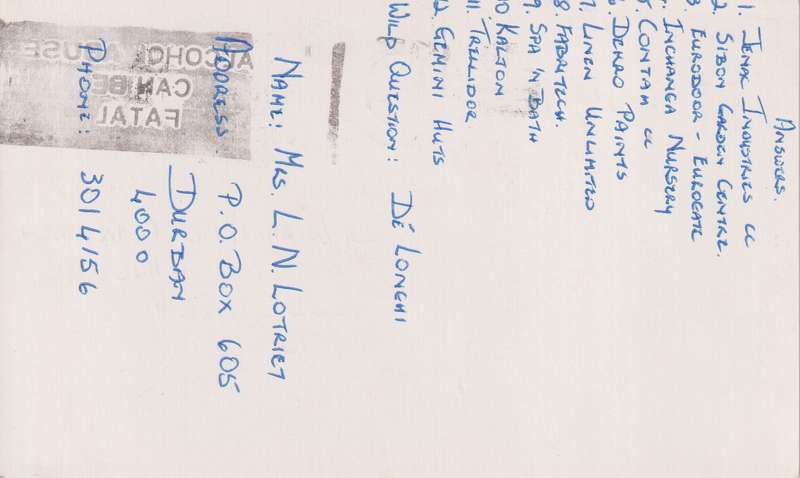 ANSWERS.
1. INDUSTRIES CC
2. SIBON GARDEN CENTRE.
3 EURODOOR - EUROGATE
. INCHANGA NURSERY
5 CONTAM CC
6 DEKRO PAINTS
7. LINEN UNLIMITED
8. FABRITECH.
9. SPA 'N BATH
10 KALTON
11. TRELLIDOR
2. GEMINI HUTS
WILD QUESTION: DÉ LONGHI
NAME: MRS. L. N. LOTRIET
ADDRESS P.O. BOX 605
DURBAN
4000
PHONE: 3014156
ALCOHOL ABUSE
CAN BE
FATAL